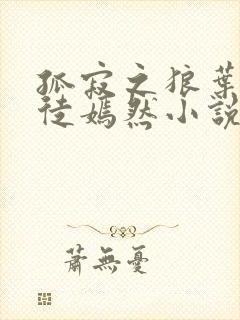 孤寂之狼葉
徒嫣然小說
蕭無憂